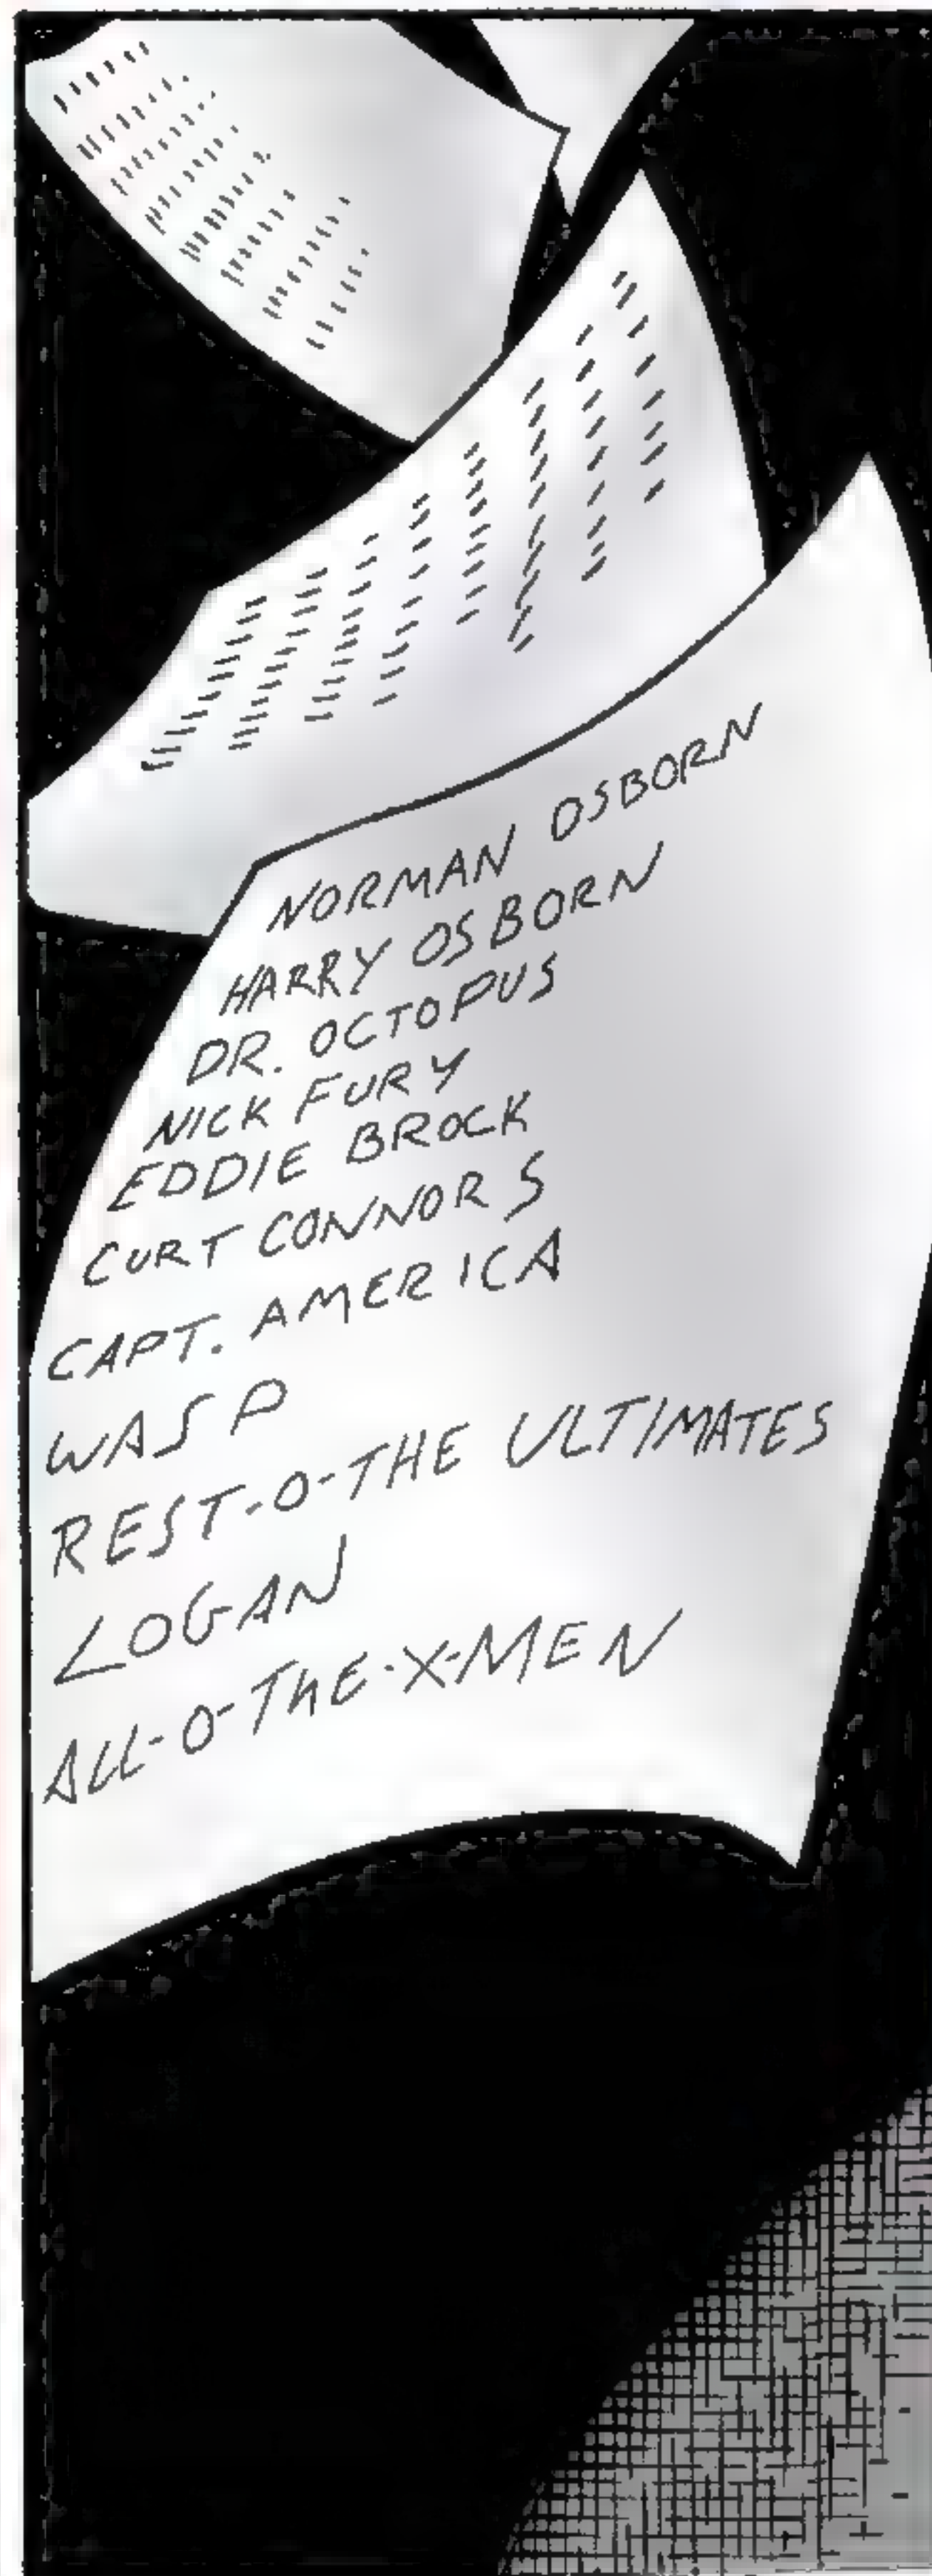 NORMAN OSBORN
HARRY OSBORN
DR. OCTOPUS
NICK FURY
EDDIE BROCK
CURT CONNORS
CAPT. AMERICA
WASP
REST-O-THE ULTIMATES
LOGAN
ALL-O-THE-X-MEN